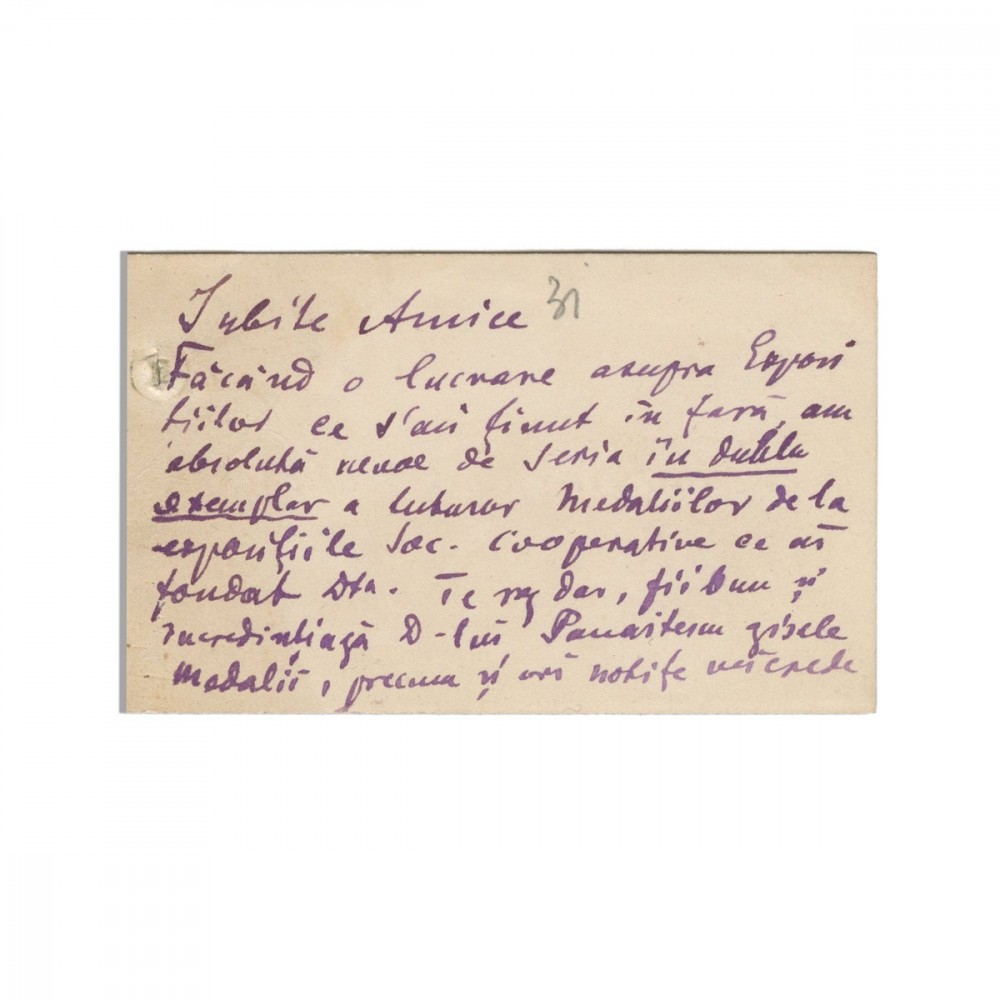 Iubite Amice 31
Făcând o lucrare asupra Expozi
tiilor ce s'au ținut în țară, am
absolută nevoe de seria în dublu
exemplar a tuturor Medaliilor de la
expozițiile Soc. Cooperative ce ai
fondat Dta. Te rog dar, fii bun și
încredințiază D-lui Panaitescu zisele
medalii, precum și ori notițe